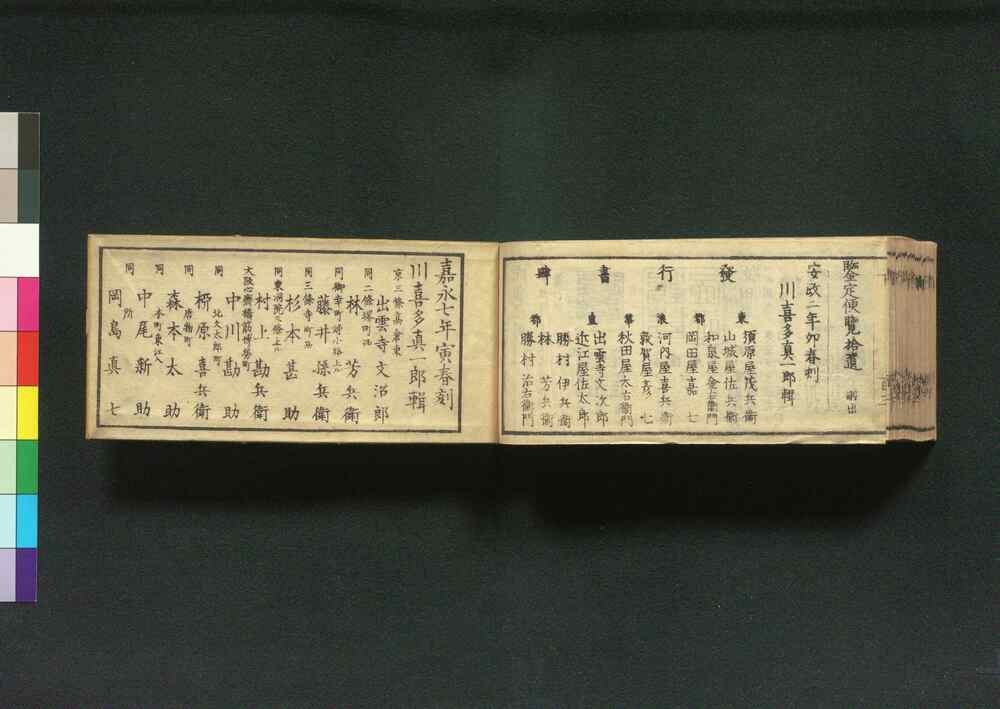 鑒定便覧拾遺 嗣出
安政二年卯春刻
川喜多真一郎輯
發行書肆
東都
須原屋茂兵衛
山城屋佐兵衛
和泉屋金右衛門
岡田屋嘉七
浪華
河内屋喜兵衛
敦賀屋彦七
秋田屋太右衛門
皇都
出雲寺文次郎
近江屋佐太郎
勝村伊兵衛
林芳兵衛
勝村治右衛門
嘉永七年寅春刻
川喜多真一郎輯
京三條高倉東
出雲寺文治郎
同二條堺町西
林芳兵衛
同御幸町姉小路上ル
藤井孫兵衛
同三條寺町西
杉本甚助
同東洞院三條上ル
村上勘兵衛
大阪心斎橋筋博勞町
中川勘助
同北久太郎町
柳原喜兵衛
同唐物町
森本太助
同本町東江入
中尾新助
同所
岡島真七